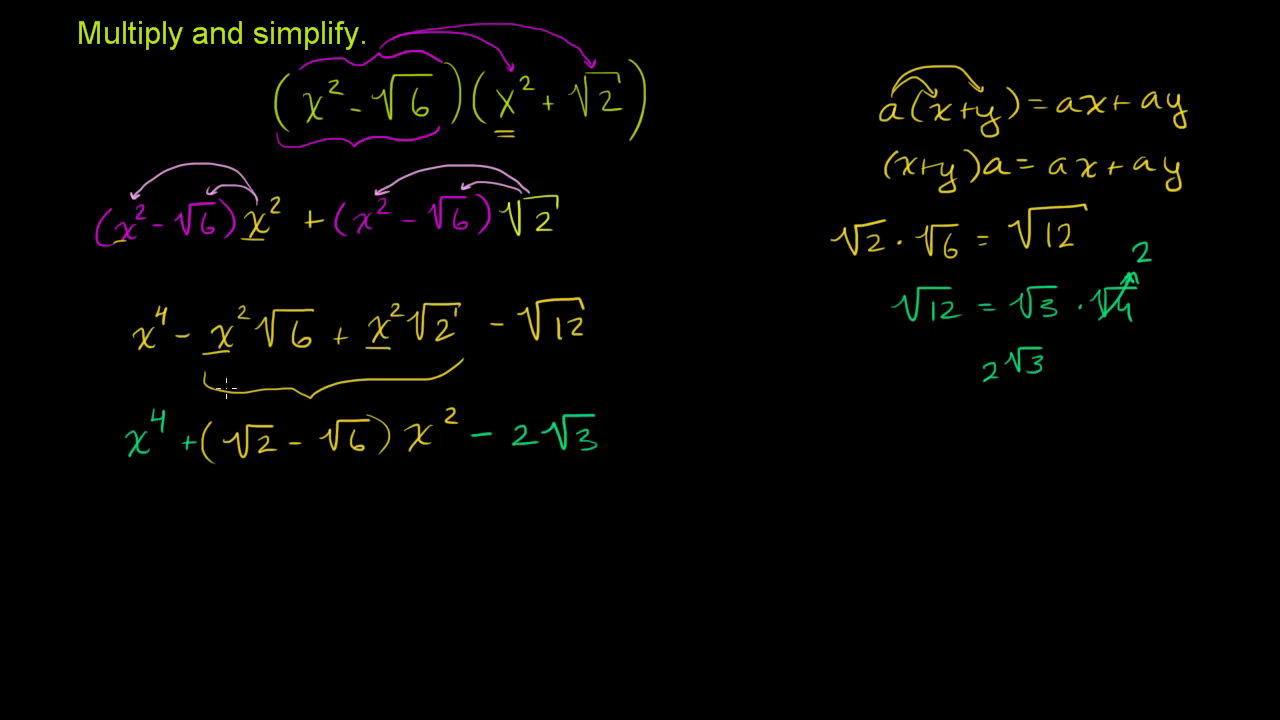 Multiply and simplify.
(x² - √6)(x² + √2)
(x² - √6)x² + (x² - √6)√2
x⁴ - x²√6 + x²√2 - √12
x⁴ + (√2 - √6)x² - 2√3
a(x+y) = ax + ay
(x+y)a = ax + ay
√2 · √6 = √12
√12 = √3 · √4 2
2√3